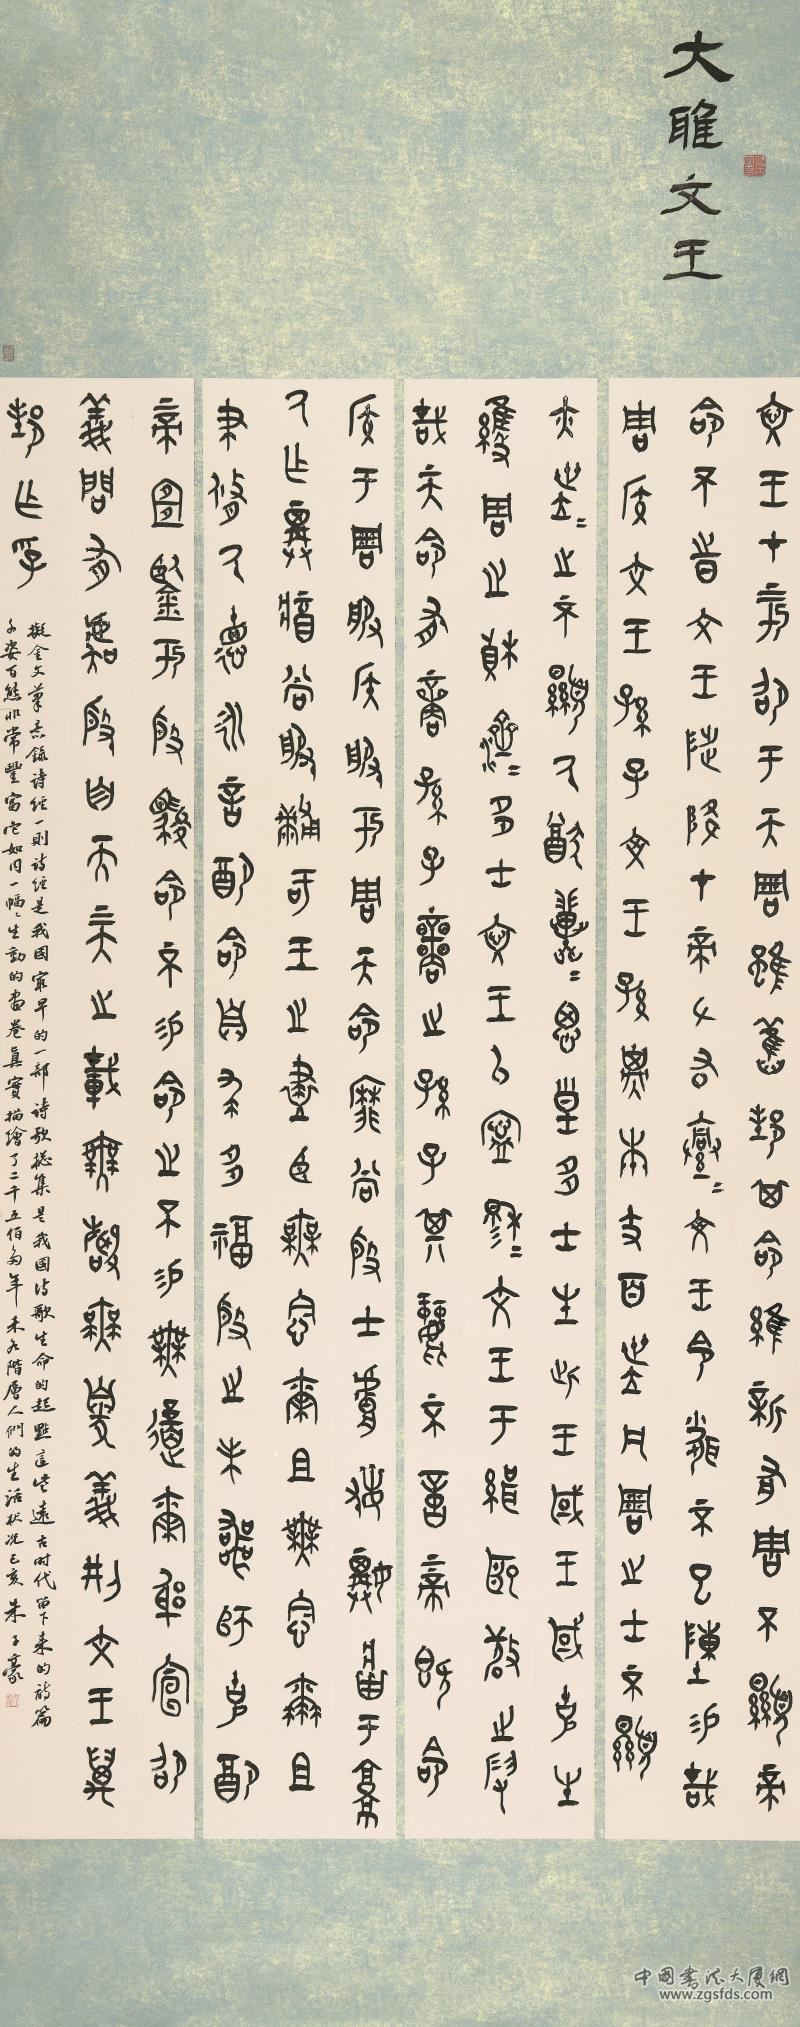 大雅文王
文王在上卲于天周雖舊邦其命維新有周不顯帝
命不時文王陟降在帝左右亹亹文王令聞不已陳錫哉
周侯文王孫子文王孫子本支百世凡周之士不顯
亦世世之不顯厥猶翼翼思皇多士生此王國王國克生
維周之楨濟濟多士文王以寧穆穆文王于緝熙敬止假
哉天命有商孫子商之孫子其麗不億上帝既命
侯于周服侯服于周天命靡常殷士膚敏祼將于京
厥作祼將常服黼冔王之藎臣無念爾且無念爾且
聿修厥德永言配命自求多福殷之未喪師克配
上帝宜鑒于殷駿命不易命之不易無遏爾躬宣卲
義問有虞殷自天上天之載無聲無臭義刑文王萬
邦作孚
擬金文筆意錄詩經一則詩經是我國最早的一部詩歌總集是我國詩歌生命的起點這些遠古时代留下來的詩篇
千姿百態非常豐富它如同一幅幅生動的畫卷真實描繪了二千五佰多年来各階層人們的生活狀況己亥朱子豪
中國書法大廈網
www.zgsfds.com